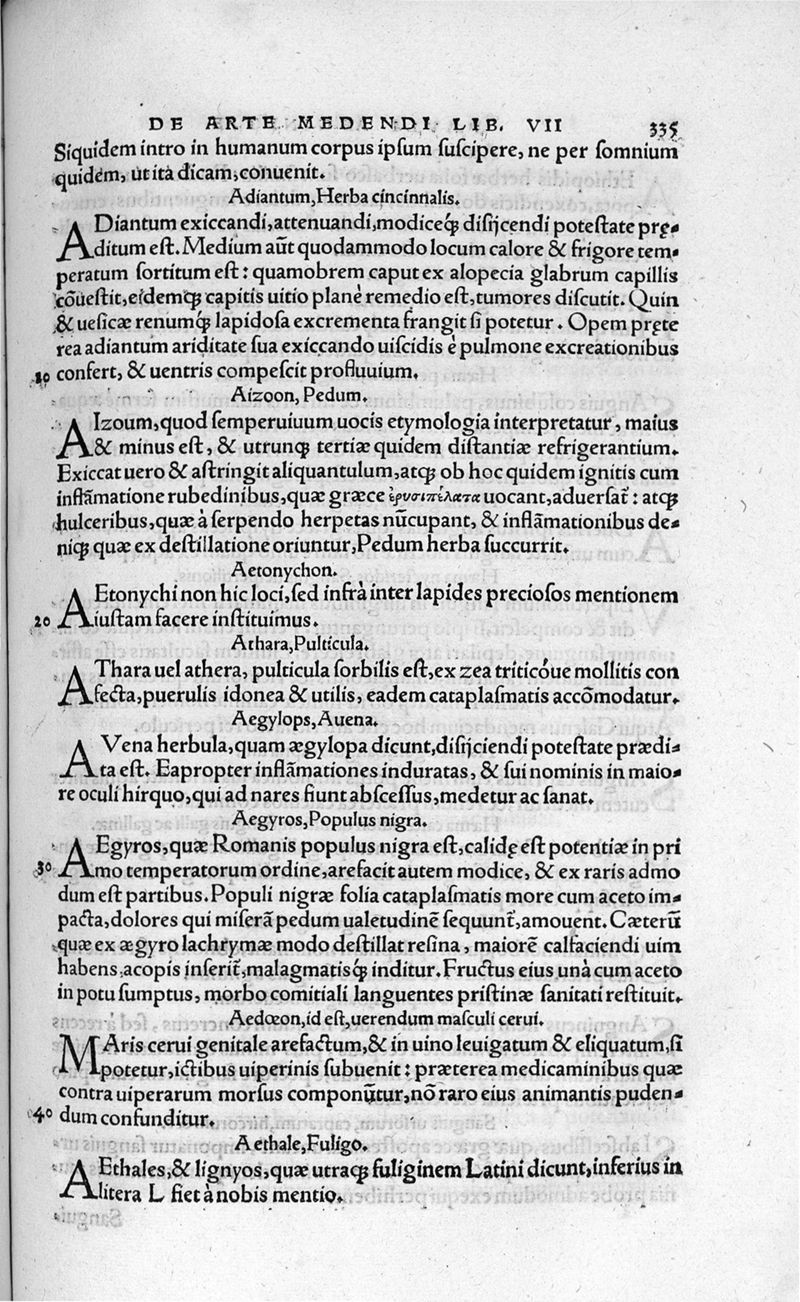 DE ARTE MEDENDI LIB. VII 335
Siquidem intro in humanum corpus ipsum suscipere, ne per somnium
quidem, ut ita dicam, conuenit.
Adiantum, Herba cincinnalis.
ADiantum exiccandi, attenuandi, modiceq́ꝫ disijcendi potestate prę-
ditum est. Medium aũt quodammodo locum calore & frigore tem-
peratum sortitum est: quamobrem caput ex alopecia glabrum capillis
cõuestit, eidemq́ꝫ capitis uitio planè remedio est, tumores discutit. Quin
& uesicæ renumq́ꝫ lapidosa excrementa frangit si potetur. Opem pręte
rea adiantum ariditate sua exiccando uiscidis è pulmone excreationibus
10 confert, & uentris compescit profluuium.
Aizoon, Pedum.
AIzoum, quod semperuiuum uocis etymologia interpretatur, maius
& minus est, & utrunqꝫ tertiæ quidem distantiæ refrigerantium.
Exiccat uero & astringit aliquantulum, atqꝫ ob hoc quidem ignitis cum
inflãmatione rubedinibus, quæ græce ἐρυσιπέλατα uocant, aduersat᷑: atqꝫ
hulceribus, quæ à serpendo herpetas nũcupant, & inflãmationibus de-
niqꝫ quæ ex destillatione oriuntur, Pedum herba succurrit.
Aetonychon.
AEtonychi non hic loci, sed infrà inter lapides preciosos mentionem
20 iustam facere instituimus.
Athara, Pulticula.
AThara uel athera, pulticula sorbilis est, ex zea triticóue mollitis con
fecta, puerulis idonea & utilis, eadem cataplasmatis accõmodatur.
Aegylops, Auena.
AVena herbula, quam ægylopa dicunt, disijciendi potestate prædi-
ta est. Eapropter inflãmationes induratas, & sui nominis in maio-
re oculi hirquo, qui ad nares fiunt abscessus, medetur ac sanat.
Aegyros, Populus nigra.
AEgyros, quæ Romanis populus nigra est, calidę est potentiæ in pri
30 mo temperatorum ordine, arefacit autem modice, & ex raris admo
dum est partibus. Populi nigræ folia cataplasmatis more cum aceto im-
pacta, dolores qui miserã pedum ualetudinẽ sequunt᷑, amouent. Cæterũ
quæ ex ægyro lachrymæ modo destillat resina, maiorẽ calfaciendi uim
habens, acopis inserit᷑, malagmatisq́ꝫ inditur. Fructus eius unà cum aceto
in potu sumptus, morbo comitiali languentes pristinæ sanitati restituit.
Aedœon, id est, uerendum masculi cerui.
MAris cerui genitale arefactum, & in uino leuigatum & eliquatum, si
potetur, ictibus uiperinis subuenit: præterea medicaminibus quæ
contra uiperarum morsus componũtur, nõ raro eius animantis puden-
40 dum confunditur.
Aethale, Fuligo.
AEthales, & lignyos, quæ utraqꝫ fuliginem Latini dicunt, inferius in
litera L fiet à nobis mentio.